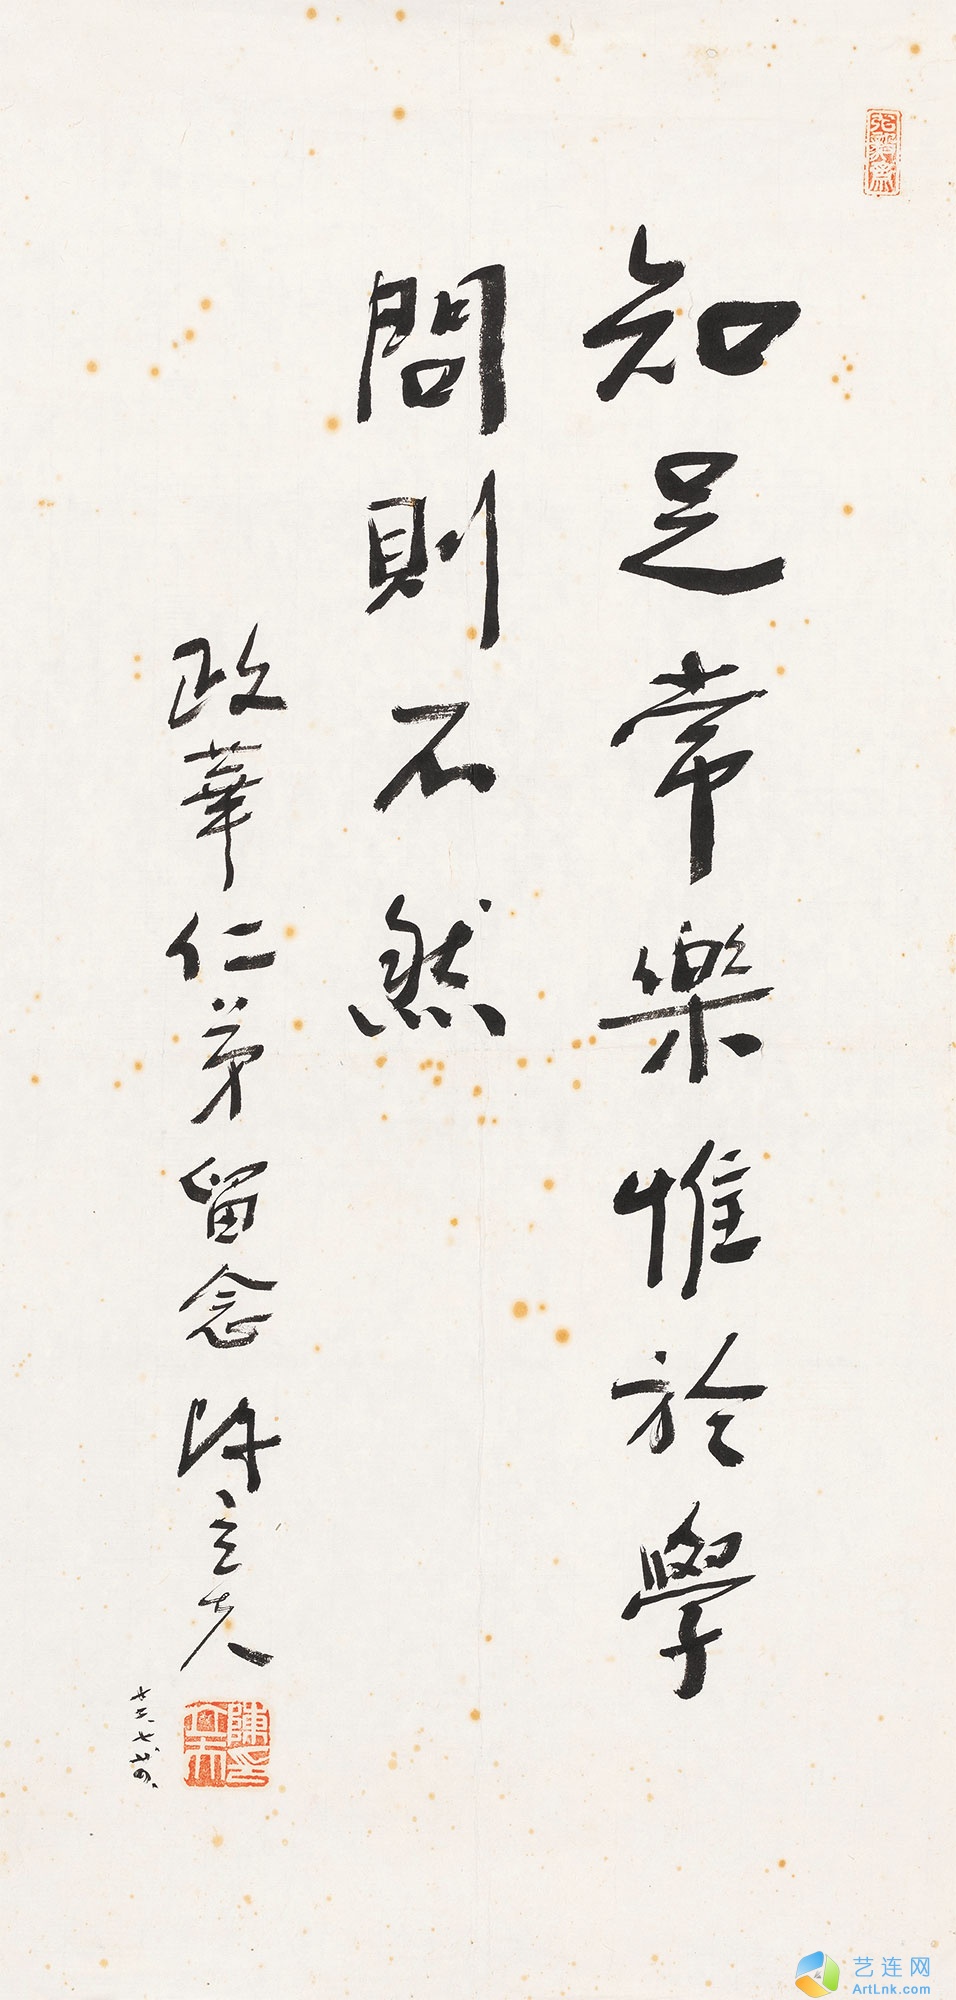 知足常樂惟於學
問則不然
政華仁弟留念 陳立夫
弘毅齋
陳立夫印
艺连网
ArtLnk.com